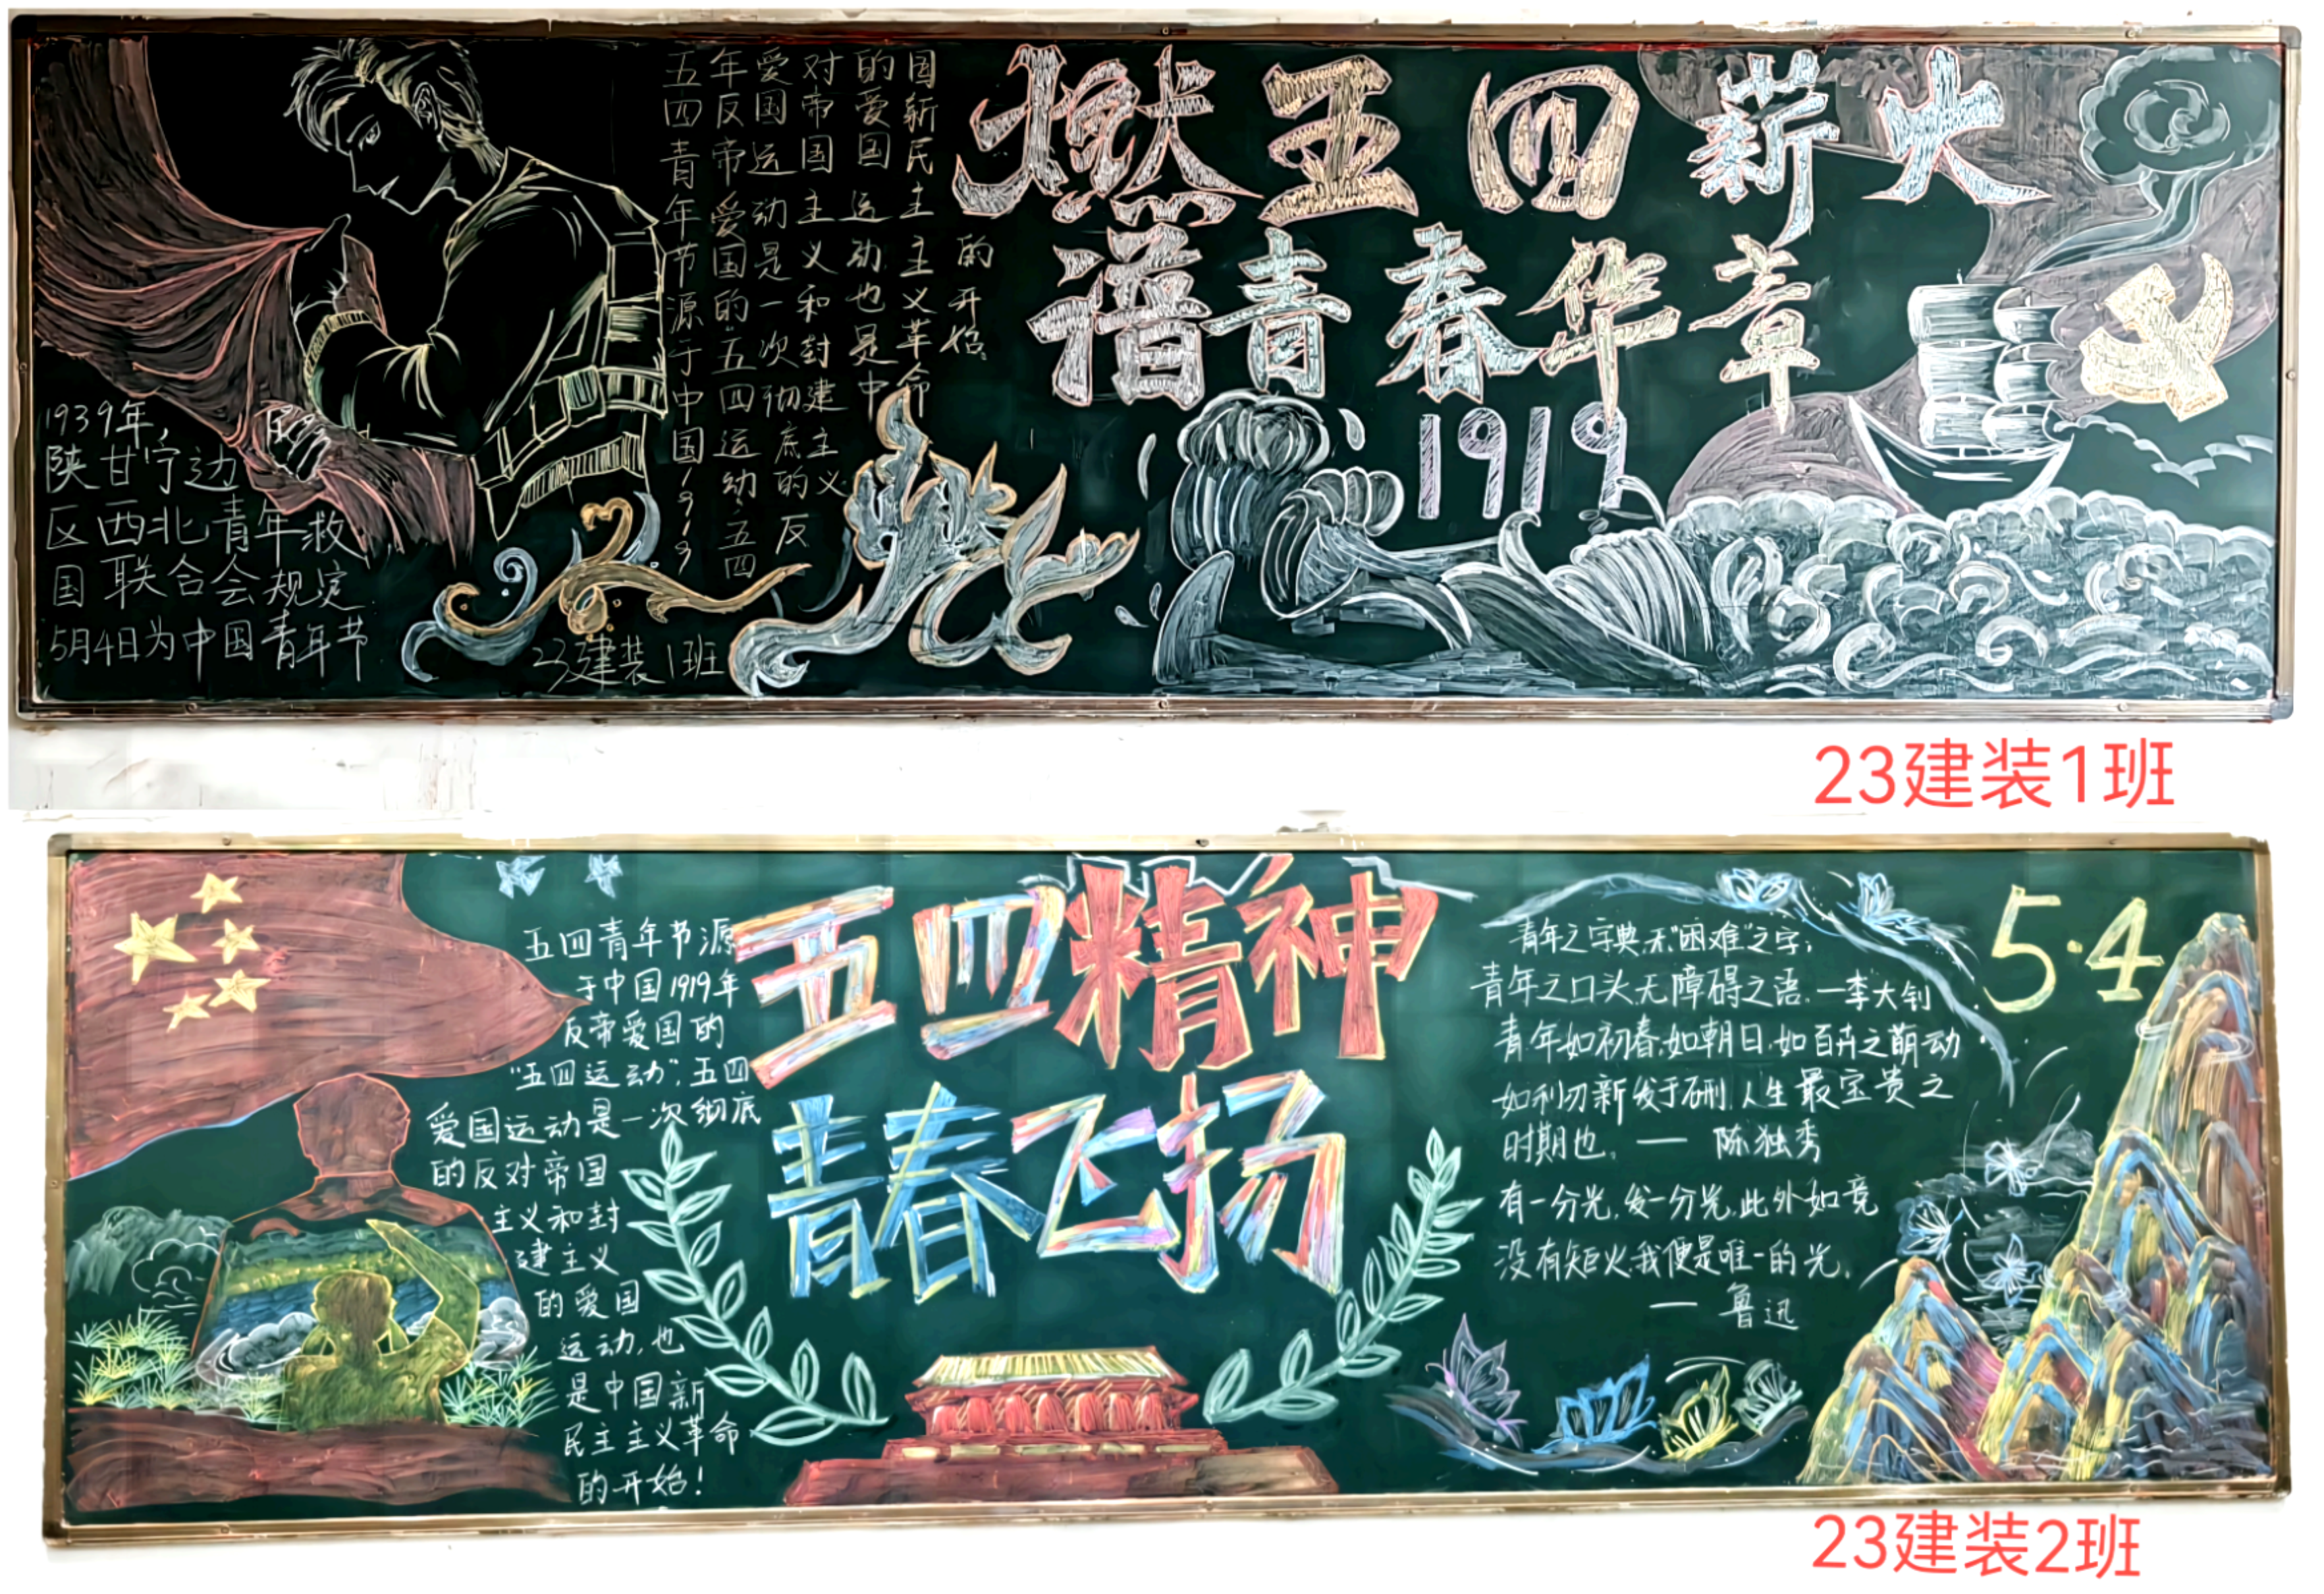 燃五四薪火
谱青春华章
1919
五四青年节源于中国1919
年反帝爱国的"五四运动,五四
爱国运动是一次彻底的反
对帝国主义和封建主义
的爱国运动也是中
国新民主主义革命
的开始。
1939年,
陕甘宁边
区西北青年救
国联合会规定
5月4日为中国青年节
23建装1班
23建装1班
五四精神
青春飞扬
五四青年节源
于中国1919年
反帝爱国的
"五四运动",五四
爱国运动是一次彻底
的反对帝国
主义和封
建主义
的爱国
运动,也
是中国新
民主主义革命
的开始!
5·4
青年之字典,无"困难"之字;
青年之口头,无障碍之语.一李大钊
青年如初春,如朝日,如百卉之萌动
如利刃新发于硎,人生最宝贵之
时期也。— 陈独秀
有一分光,发一分光,此外如竟
没有炬火,我便是唯一的光。
— 鲁迅
23建装2班